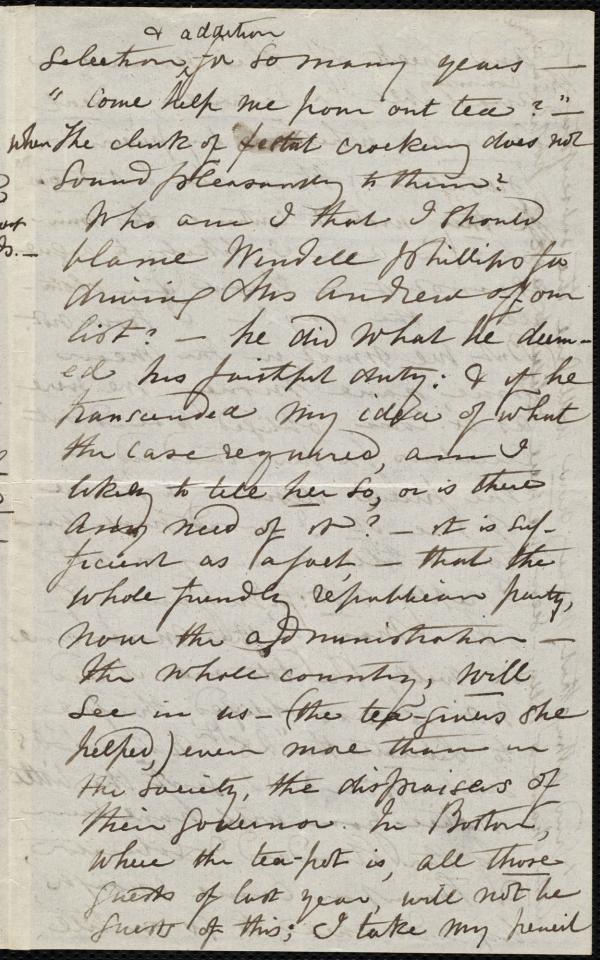 & addition
selection, for so many years —
" come help me pour out tea ?" —
when the clink of festal crockery does not
sound pleasantly to them?
Who am I that I should
blame Wendell Phillips for
driving Mrs Andrew off our
list? — he did what he deem-
ed his faithful duty: & if he
transcended my idea of what
the case required, am I
likely to tell her so, or is there
any need of it? — it is suf-
ficient as a fact — that the
whole friendly republican party,
now the administration —
the whole country, will
see in us — (the tea-givers she
helped,) even more than in
the Society, the dispraisers of
their governor. In Boston,
where the tea-pot is, all those
guests of last year, will not be
guests of this; I take my pencil